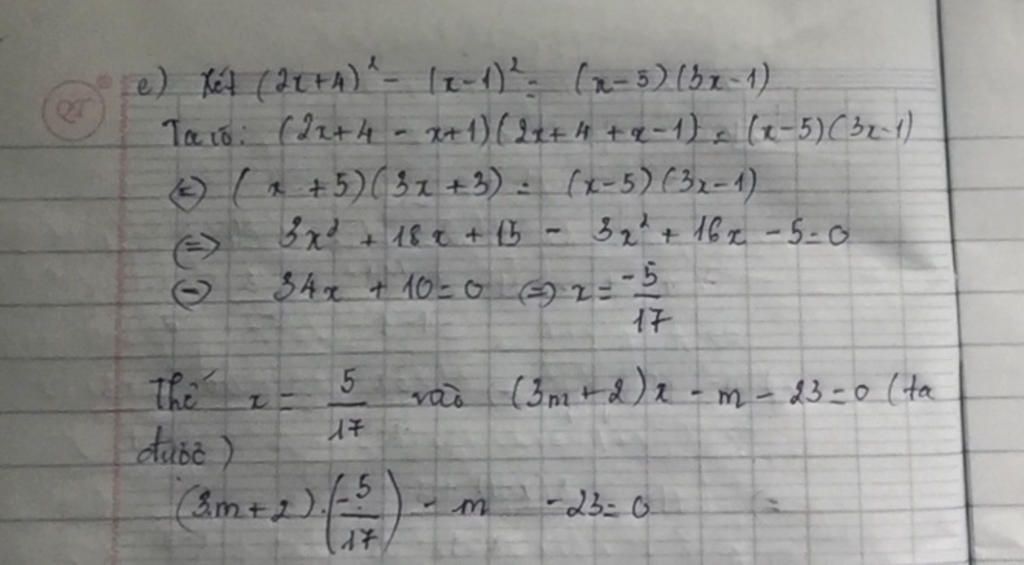 e) Xét (2x+4)² - (x-1)² = (x-5)(3x-1)
Ta có: (2x+4 - x+1)(2x+4 + x-1) = (x-5)(3x-1)
⇔ (x + 5)(3x + 3) = (x-5)(3x-1)
⇔ 3x² + 18x + 15 - 3x² + 16x - 5 = 0
⇔ 34x + 10 = 0 ⇔ x = -5/17
Thế x = 5/17 vào (3m+2)x - m - 23 = 0 (ta
được)
(3m+2).(-5/17) - m - 23 = 0 =